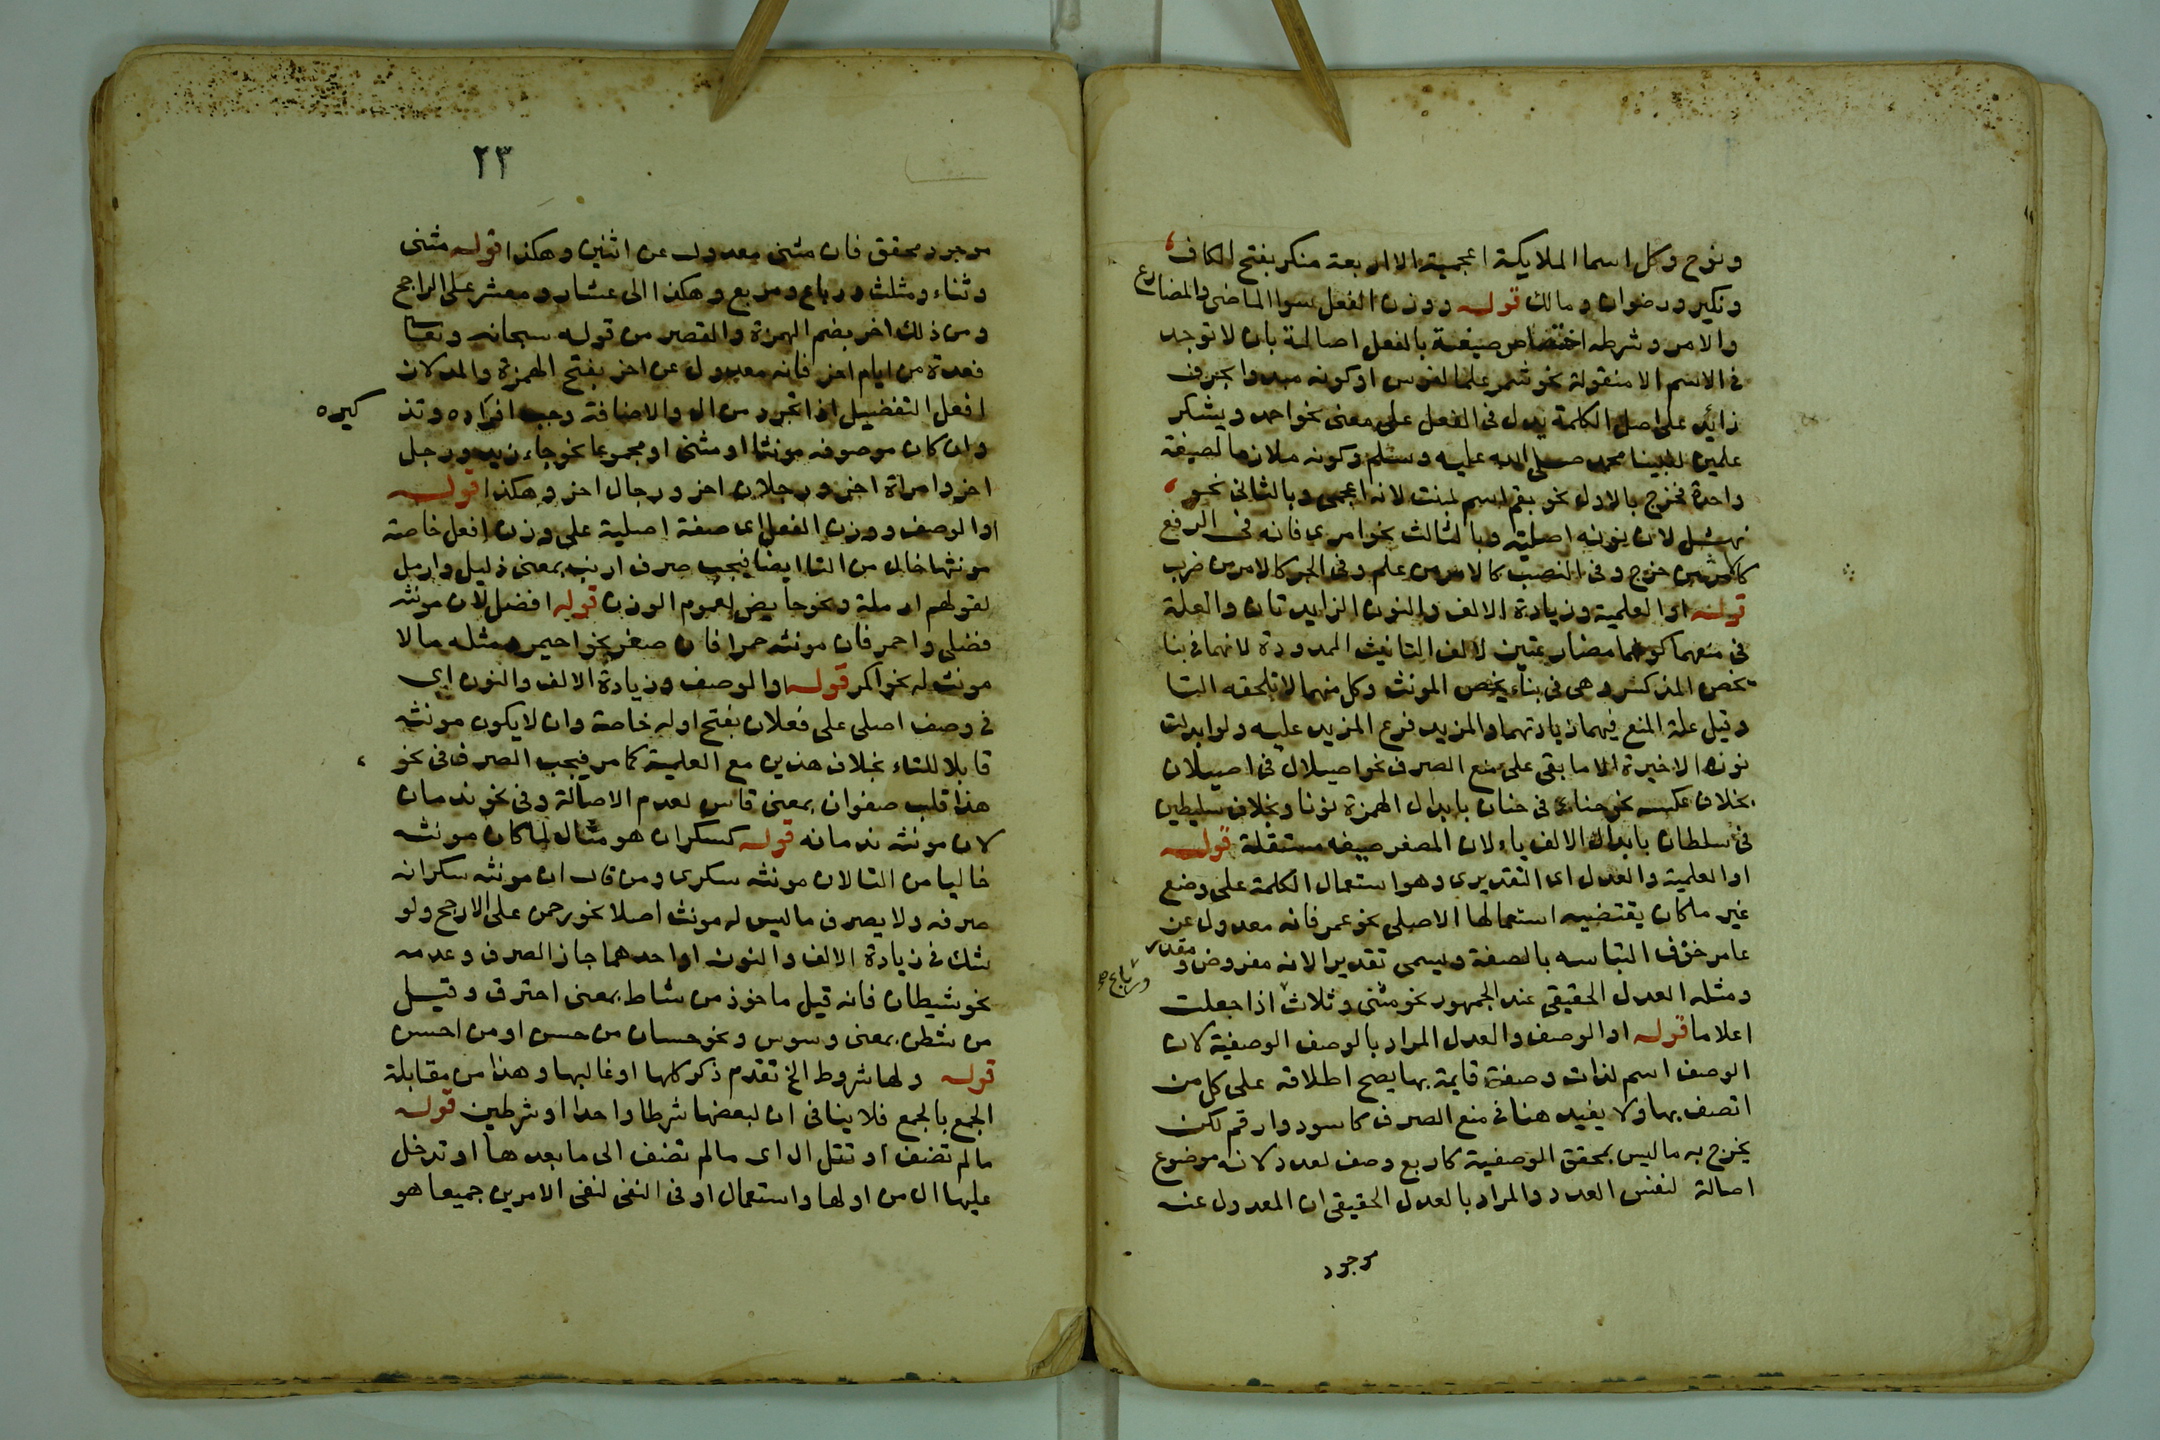 ونوح وكل اسما الملايكة اعجمية الا اربعة منكر بفتح الكاف
ونكير ورضوان ومالك قوله ووزن الفعل سوا الماضى والمضارع
والامر وشرطه اختصاص صيغة بالفعل اصالة بان لا توجد
فى الاسم الا منقولة نحو شمر علما لفرس او كونه مبدوا بحرف
زائد على اصل الكلمة يدل فى الفعل على معنى نحو احمد ويشكر
علمين لنبينا محمد صلى الله عليه وسلم وكونه ملازما لصيغة
واحدة فخرج بالاول نحو بقم اسم لنبت لانه اعجمى وبالثانى نحو
نهشل لان نونه اصلية وبالثالث نحو امرى فانه فى الرفع
كالامر من خرج وفى النصب كالامر من علم وفى الجر كالامر من ضرب
قوله او العلمية وزيادة الالف والنون الزايدتان والعلة
فى منعهما كونهما مضارعتين لالف التانيث الممدودة لانهما فى بنا
يخص المذكر وهى فى بناء يخص المونث وكل منهما لا تلحقه التا
وقيل علة المنع فيهما زيادتهما والمزيد فرع المزيد عليه ولو ابدلت
نونه الاخيرة لاما بقى على منع الصرف نحو اصيلال فى اصيلان
بخلاف عكسه نحو حناء فى حنان بابدال الهمزة نونا وبخلاف سليطين
فى سلطان بابدال الالف ياء لان المصغر صيغه مستقلة قوله
او العلمية والعدل اى التقديرى وهو استعمال الكلمة على وضع
غير ما كان يقتضيه استعمالها الاصلى نحو عمر فانه معدول عن
عامر خوف التباسه بالصفة ويسمى تقديرا لانه مفروض ومقدر
ومثله العدل الحقيقى عند الجمهور نحو مثنى وثلاث اذا جعلت
ورباع صح
اعلاما قوله او الوصف والعدل المراد بالوصف الوصفية لان
الوصف اسم لذات وصفة قايمة بها يصح اطلاقه على كل من
اتصف بها ولا يفيد هنا فى منع الصرف كاسود وارقم لكن
يخرج به ما ليس بمحقق الوصفية كاربع وصف لعدد لانه موضوع
اصالة لنفس العدد والمراد بالعدل الحقيقى ان المعدول عنه
موجود
٢٣
موجود محقق فان مثنى معدول عن اثنين وهكذا قوله مثنى
وثناء ومثلث ورباع ومربع وهكذا الى عشار ومعشر على الراجح
ومن ذلك اخر بضم الهمزة والقصر من قوله سبحانه وتعا
فعدة من ايام اخر فانه معدول عن اخر بفتح الهمزة والمد لان
افعل التفضيل اذا تجرد من ال والاضافة وجب افراده وتذ
كيره
وان كان موصوفه مونثا او مثنى او مجموعا نحو جاء زيد ورجل
اخر وامراة اخر ورجلان اخر ورجال اخر وهكذا قوله
او الوصف ووزن الفعل اى صفة اصلية على وزن افعل خاصة
مونثها خال من التا ايضا فيجب صرف ارنب بمعنى ذليل وارمل
لقولهم ارملة ونحو حايض لعموم الوزن قوله افضل لان مونثه
فضلى واحمر فان مونثه حمرا فان صغر نحو احيمر ومثله ما لا
مونث له نحو اكمر قوله او الوصف وزيادة الالف والنون اى
فى وصف اصلى على فعلان بفتح اوله خاصة وان لا يكون مونثه
قابلا للتاء بخلاف هذين مع العلمية كما مر فيجب الصرف فى نحو
هذا قلب صفوان بمعنى قاس لعدم الاصالة وفى نحو ندمان
لان مونثه ندمانه قوله كسكران هو مثال لما كان مونثه
خاليا من التا لان مونثه سكرى ومن قال ان مونثه سكرانه
صرفه ولا يصرف ما ليس له مونث اصلا نحو رحمن على الارجح ولو
شك فى زيادة الالف والنون او احدهما جاز الصرف وعدمه
نحو شيطان فانه قيل ماخوذ من شاط بمعنى احترق وقيل
من شطن بمعنى وسوس ونحو حسان من حسن او من احسن
قوله ولها شروط الخ تقدم ذكر كلها او غالبها وهذا من مقابلة
الجمع بالجمع فلا ينافى ان لبعضها شرطا واحدا او شرطين قوله
ما لم تضف او تتل ال اى ما لم تضف الى ما بعدها او تدخل
عليها ال من اولها واستعمال او فى النفى لنفى الامرين جميعا هو